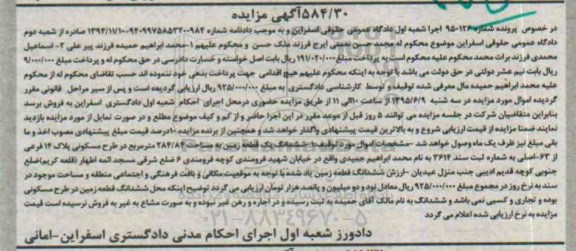 ۵۸۴/۳۰آگهی مزایده
در خصوص پرونده شماره ۱۲۶-۹۵ اجرا شعبه اول دادگاه عمومی حقوقی اسفراین و به موجب دادنامه شماره ۹۴۰۹۹۷۵۸۵۳۲۰۰۹۸۴-۱۳۹۴/۱۱/۱۰ صادره از شعبه دوم
دادگاه عمومی حقوقی اسفراین موضوع محکوم له محمد نعمتی ایرج فرزند ملک حسن و محکوم علیهم ۱-محمد ابراهیم حمیده فرزند پیر علی ۲- اسماعیل
محمدی فرزند برات محمد محکوم علیه محکوم است به پرداخت مبلغ ۱۹۱/۰۲۰/۰۰۰ ریال بابت اصل خواسته و خسارت دادرسی در حق محکوم له و پرداخت مبلغ ۹/۰۰۰/۰۰۰
ریال بابت نیم عشر دولتی در حق دولت می باشد با توجه به اینکه محکوم علیهم هیچ اقدامی جهت پرداخت بدهی خود ننموده اند حسب تقاضای محکوم له از محکوم
علیه محمد ابراهیم حمیده مال معرفی شده توقیف و توسط کارشناسی دادگستری به مبلغ ۹۲۵/۰۰۰/۰۰۰ ریال ارزیابی گردیده است و پس از سیر مراحل قانونی مقرر
گردیده اموال مورد مزایده در سه شنبه ۱۳۹۵/۶/۹ از ساعت ۱۰الی ۱۱ از طریق مزایده حضوری درمحل اجرای احکام شعبه اول دادگستری اسفراین به فروش برسد
بنابراین متقاضیان شرکت در جلسه مزایده می توانند ۵ روز قبل از موعد مقرر در این اجرا حاضر و از کم و کیف موضوع مطلع و در صورت تمایل از مورد مزایده بازدید
نمایند ضمنا مزایده از قیمت ارزیابی شروع و به بالاترین قیمت پیشنهادی واگذار خواهد شد و همچنین از برنده مزایده ۱۰درصد قیمت مبلغ پیشنهادی مصوب اخذ و ما
بقی مبلغ نیز ظرف یک ماه وصول خواهد شد -مشخصات اموال مورد توقیف: ششدانگ یک قطعه زمین به مساحت ۲۸۴/۸۴ مترمربع در طرح مسکونی پلاک ۱۴ فرعی
از ۶۳-اصلی به شماره ثبت سند ۳۶۱۴ به نام محمد ابراهیم حمیدی واقع در خیابان شهید فرومندی کوچه فرومندی ۶ ضلع شرقی مسجد ائمه اطهار (قلعه کریم)ضلع
جنوبی کوچه قدیم ادیبی جنب منزل عیدیان -ارزش ششدانگ قطعه زمین یاد شده با توجه به موقعیت مکانی و بافت فرهنگی و اجتماعی منطقه و مساحت موجود در
سند به نرخ روز در مجموع مبلغ ۹۲۵/۰۰۰/۰۰۰ ریال معادل نود و دو میلیون و پانصد هزار تومان ارزیابی می گردد توضیح اینکه محل ششدانگ قطعه زمین در طرح مسکونی
بوده و تجاری و کسبی نمی باشد و ششدانگ به نام مالک آقای حمیده به ثبت رسیده و در اجاره و رهن غیر نبوده و به صورت مشاع به غیر به فروش نرسیده است قیمت
مزایده به نرخ ارزیابی شده اعلام می گردد
۰۲۱-۸۸۳۴۹۶۷۰-۵
دادورز شعبه اول اجرای احکام مدنی دادگستری اسفراین-امانی